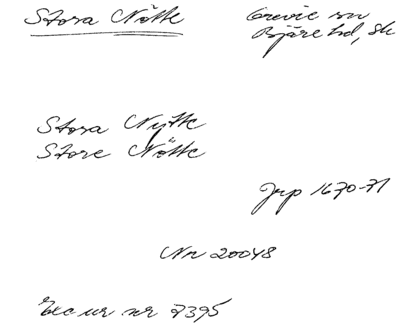 Stora Nötte
Grevie sn
Bjäre hd, Sk
Stora Nytte
Store Nötte
Jrp 1670-71
Nr 20048
Exc ur nr 7395